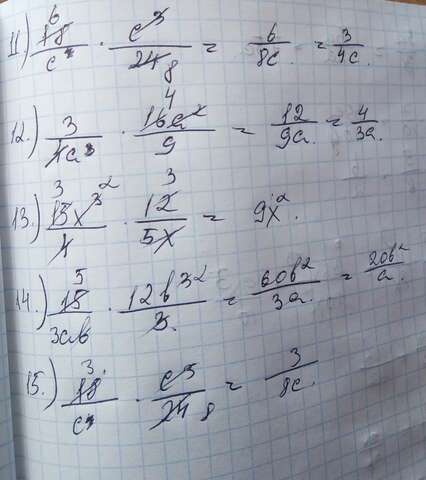 11.) 6 18/c⁴ · c³/24 8 = 6/8c = 3/4c.
12.) 3/4a³ · 4 16a²/9 = 12/9a = 4/3a.
13.) 3 15x³ ²/4 · 3 12/5x = 9x².
14.) 5 15/3ab · 12b³ ²/3. = 60b²/3a. = 20b²/a.
15.) 3 18/c⁴ · c³/24 8 = 3/8c.